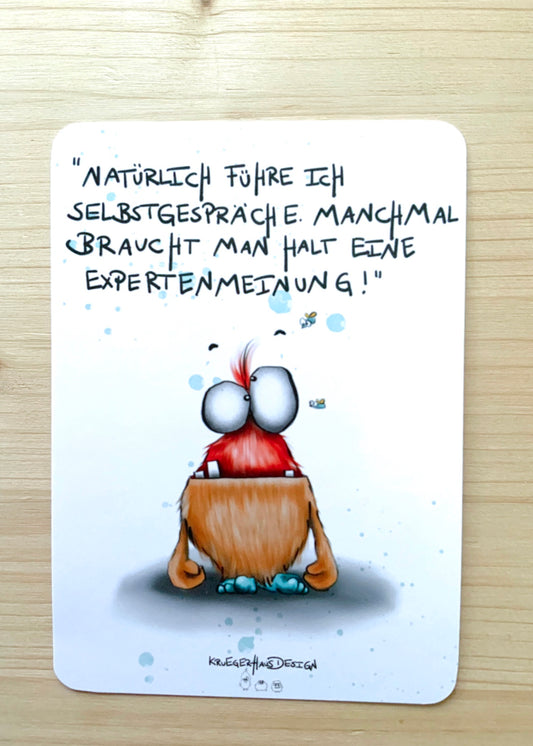 "NATÜRLICH FÜHRE ICH
SELBSTGESPRÄCHE. MANCHMAL
BRAUCHT MAN HALT EINE
EXPERTENMEINUNG!"
KRUEGERHAUSDESIGN